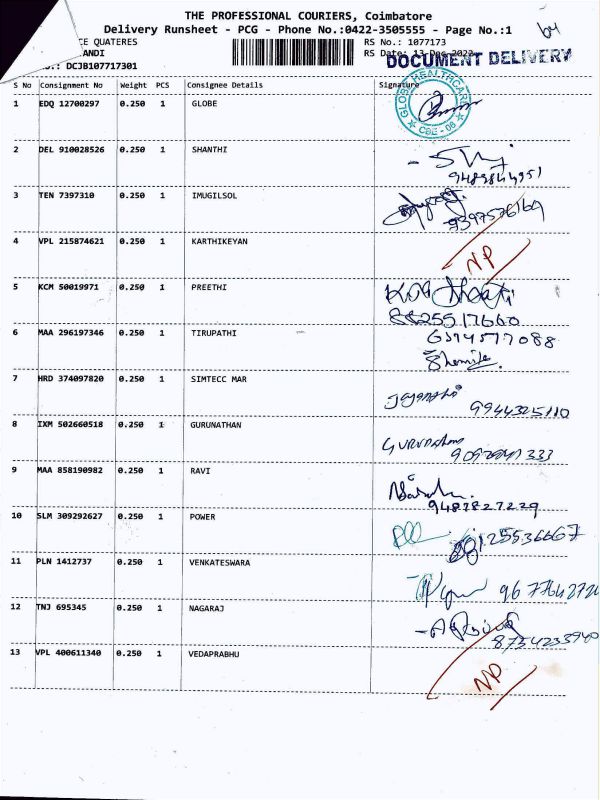 THE PROFESSIONAL COURIERS, Coimbatore
Delivery Runsheet - PCG - Phone No.:0422-3505555 - Page No.:1
CE QUATERES
RS No.: 1077173
ANDI
RS Date: 13-Dec-2022
DOCUMENT DELIVERY
DCJB107717301
S No Consignment No Weight PCS Consignee Details Signature
GLOBE HEALTHCARE
CBE - 06
1 EDQ 12700297 0.250 1 GLOBE
2 DEL 910028526 0.250 1 SHANTHI
3 TEN 7397310 0.250 1 IMUGILSOL
4 VPL 215874621 0.250 1 KARTHIKEYAN NP
5 KCM 50019971 0.250 1 PREETHI
8825517660
6 MAA 296197346 0.250 1 TIRUPATHI
7 HRD 374097820 0.250 1 SIMTECC MAR
9944325110
8 IXM 502660518 0.250 1 GURUNATHAN
9 MAA 858190982 0.250 1 RAVI
9487827229
10 SLM 309292627 0.250 1 POWER
11 PLN 1412737 0.250 1 VENKATESWARA
12 TNJ 695345 0.250 1 NAGARAJ
13 VPL 400611340 0.250 1 VEDAPRABHU NP